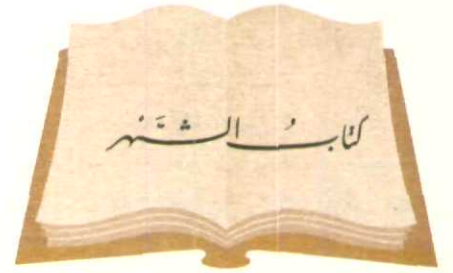 كتابُ الشَّهْر